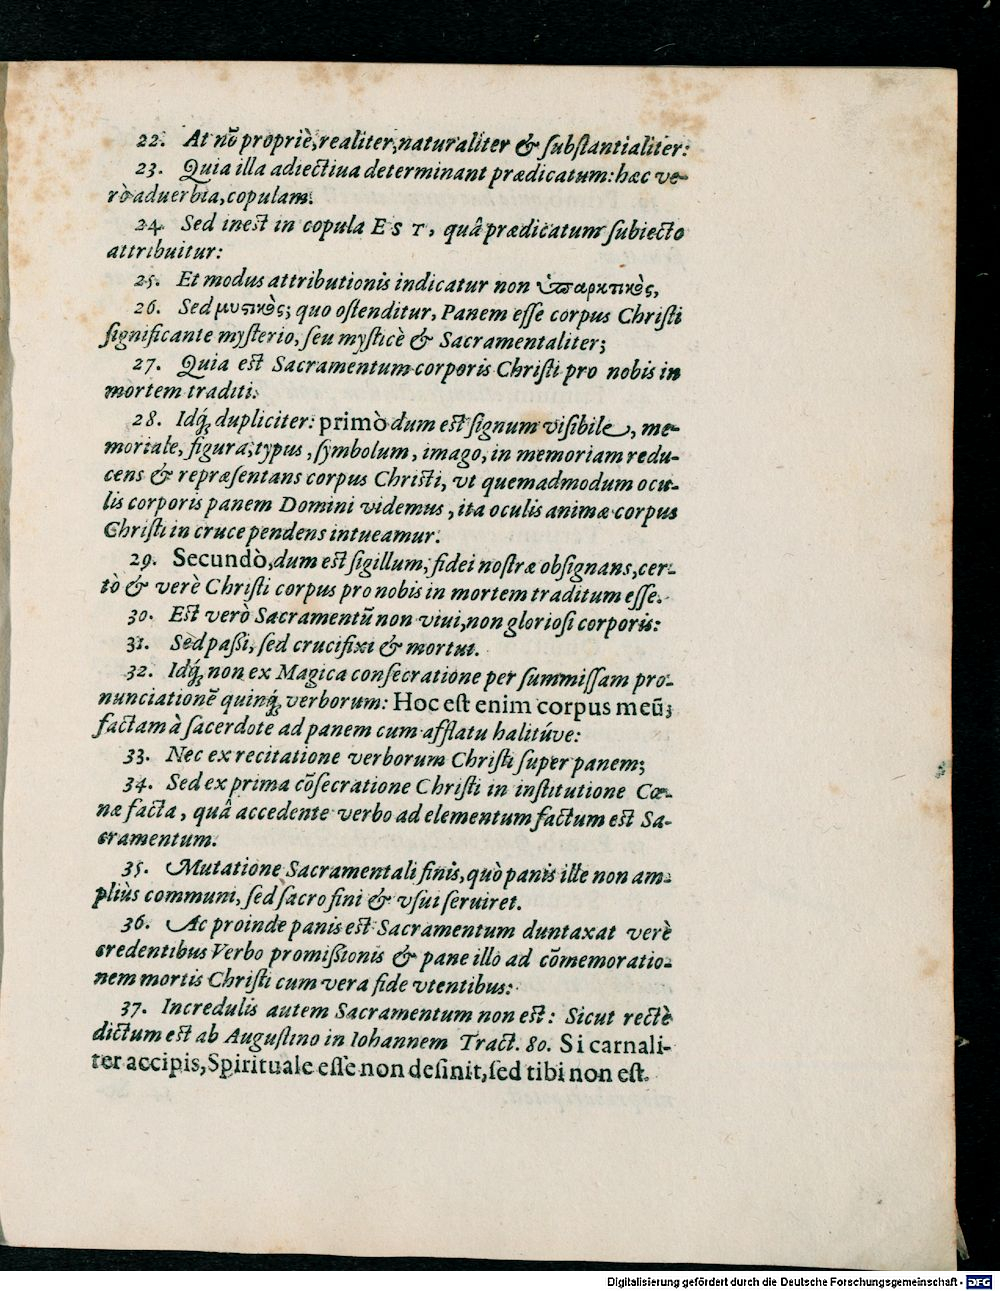 22. At nõ propriè, realiter, naturaliter & ſubſtantialiter:
23. Quia illa adiectiua determinant prædicatum: hæc ve-
rò aduerbia, copulam.
24. Sed ineſt in copula EST, quâ prædicatum ſubiecto
attribuitur:
25. Et modus attributionis indicatur non ὑπαρκτικῶς,
26. Sed μυστικῶς; quo oſtenditur, Panem eſſe corpus Chriſti
ſignificante myſterio, ſeu myſticè & Sacramentaliter;
27. Quia eſt Sacramentum corporis Chriſti pro nobis in
mortem traditi.
28. Idq́; dupliciter: primò dum eſt ſignum viſibile, me-
moriale, figura, typus, ſymbolum, imago, in memoriam redu-
cens & repræſentans corpus Chriſti, vt quemadmodum ocu-
lis corporis panem Domini videmus, ita oculis animæ corpus
Chriſti in cruce pendens intueamur.
29. Secundò, dum eſt ſigillum, fidei noſtræ obſignans, cer-
tò & verè Chriſti corpus pro nobis in mortem traditum eſſe.
30. Eſt verò Sacramentũ non viui, non glorioſi corporis:
31. Sed paßi, ſed crucifixi & mortui.
32. Idq́; non ex Magica conſecratione per ſummiſſam pro-
nunciationẽ quinq́; verborum: Hoc eſt enim corpus meũ;
factam à ſacerdote ad panem cum afflatu halitúve:
33. Nec ex recitatione verborum Chriſti ſuper panem;
34. Sed ex prima cõſecratione Chriſti in inſtitutione Cœ-
næ facta, quâ accedente verbo ad elementum factum eſt Sa-
cramentum.
35. Mutatione Sacramentali finis, quò panis ille non am-
pliùs communi, ſed ſacro fini & vſui ſeruiret.
36. Ac proinde panis eſt Sacramentum duntaxat verè
credentibus Verbo promißionis & pane illo ad cõmemoratio-
nem mortis Chriſti cum vera fide vtentibus:
37. Incredulis autem Sacramentum non eſt: Sicut rectè
dictum eſt ab Auguſtino in Iohannem Tract. 80. Si carnali-
ter accipis, Spirituale eſſe non deſinit, ſed tibi non eſt.
Digitalisierung gefördert durch die Deutsche Forschungsgemeinschaft - DFG